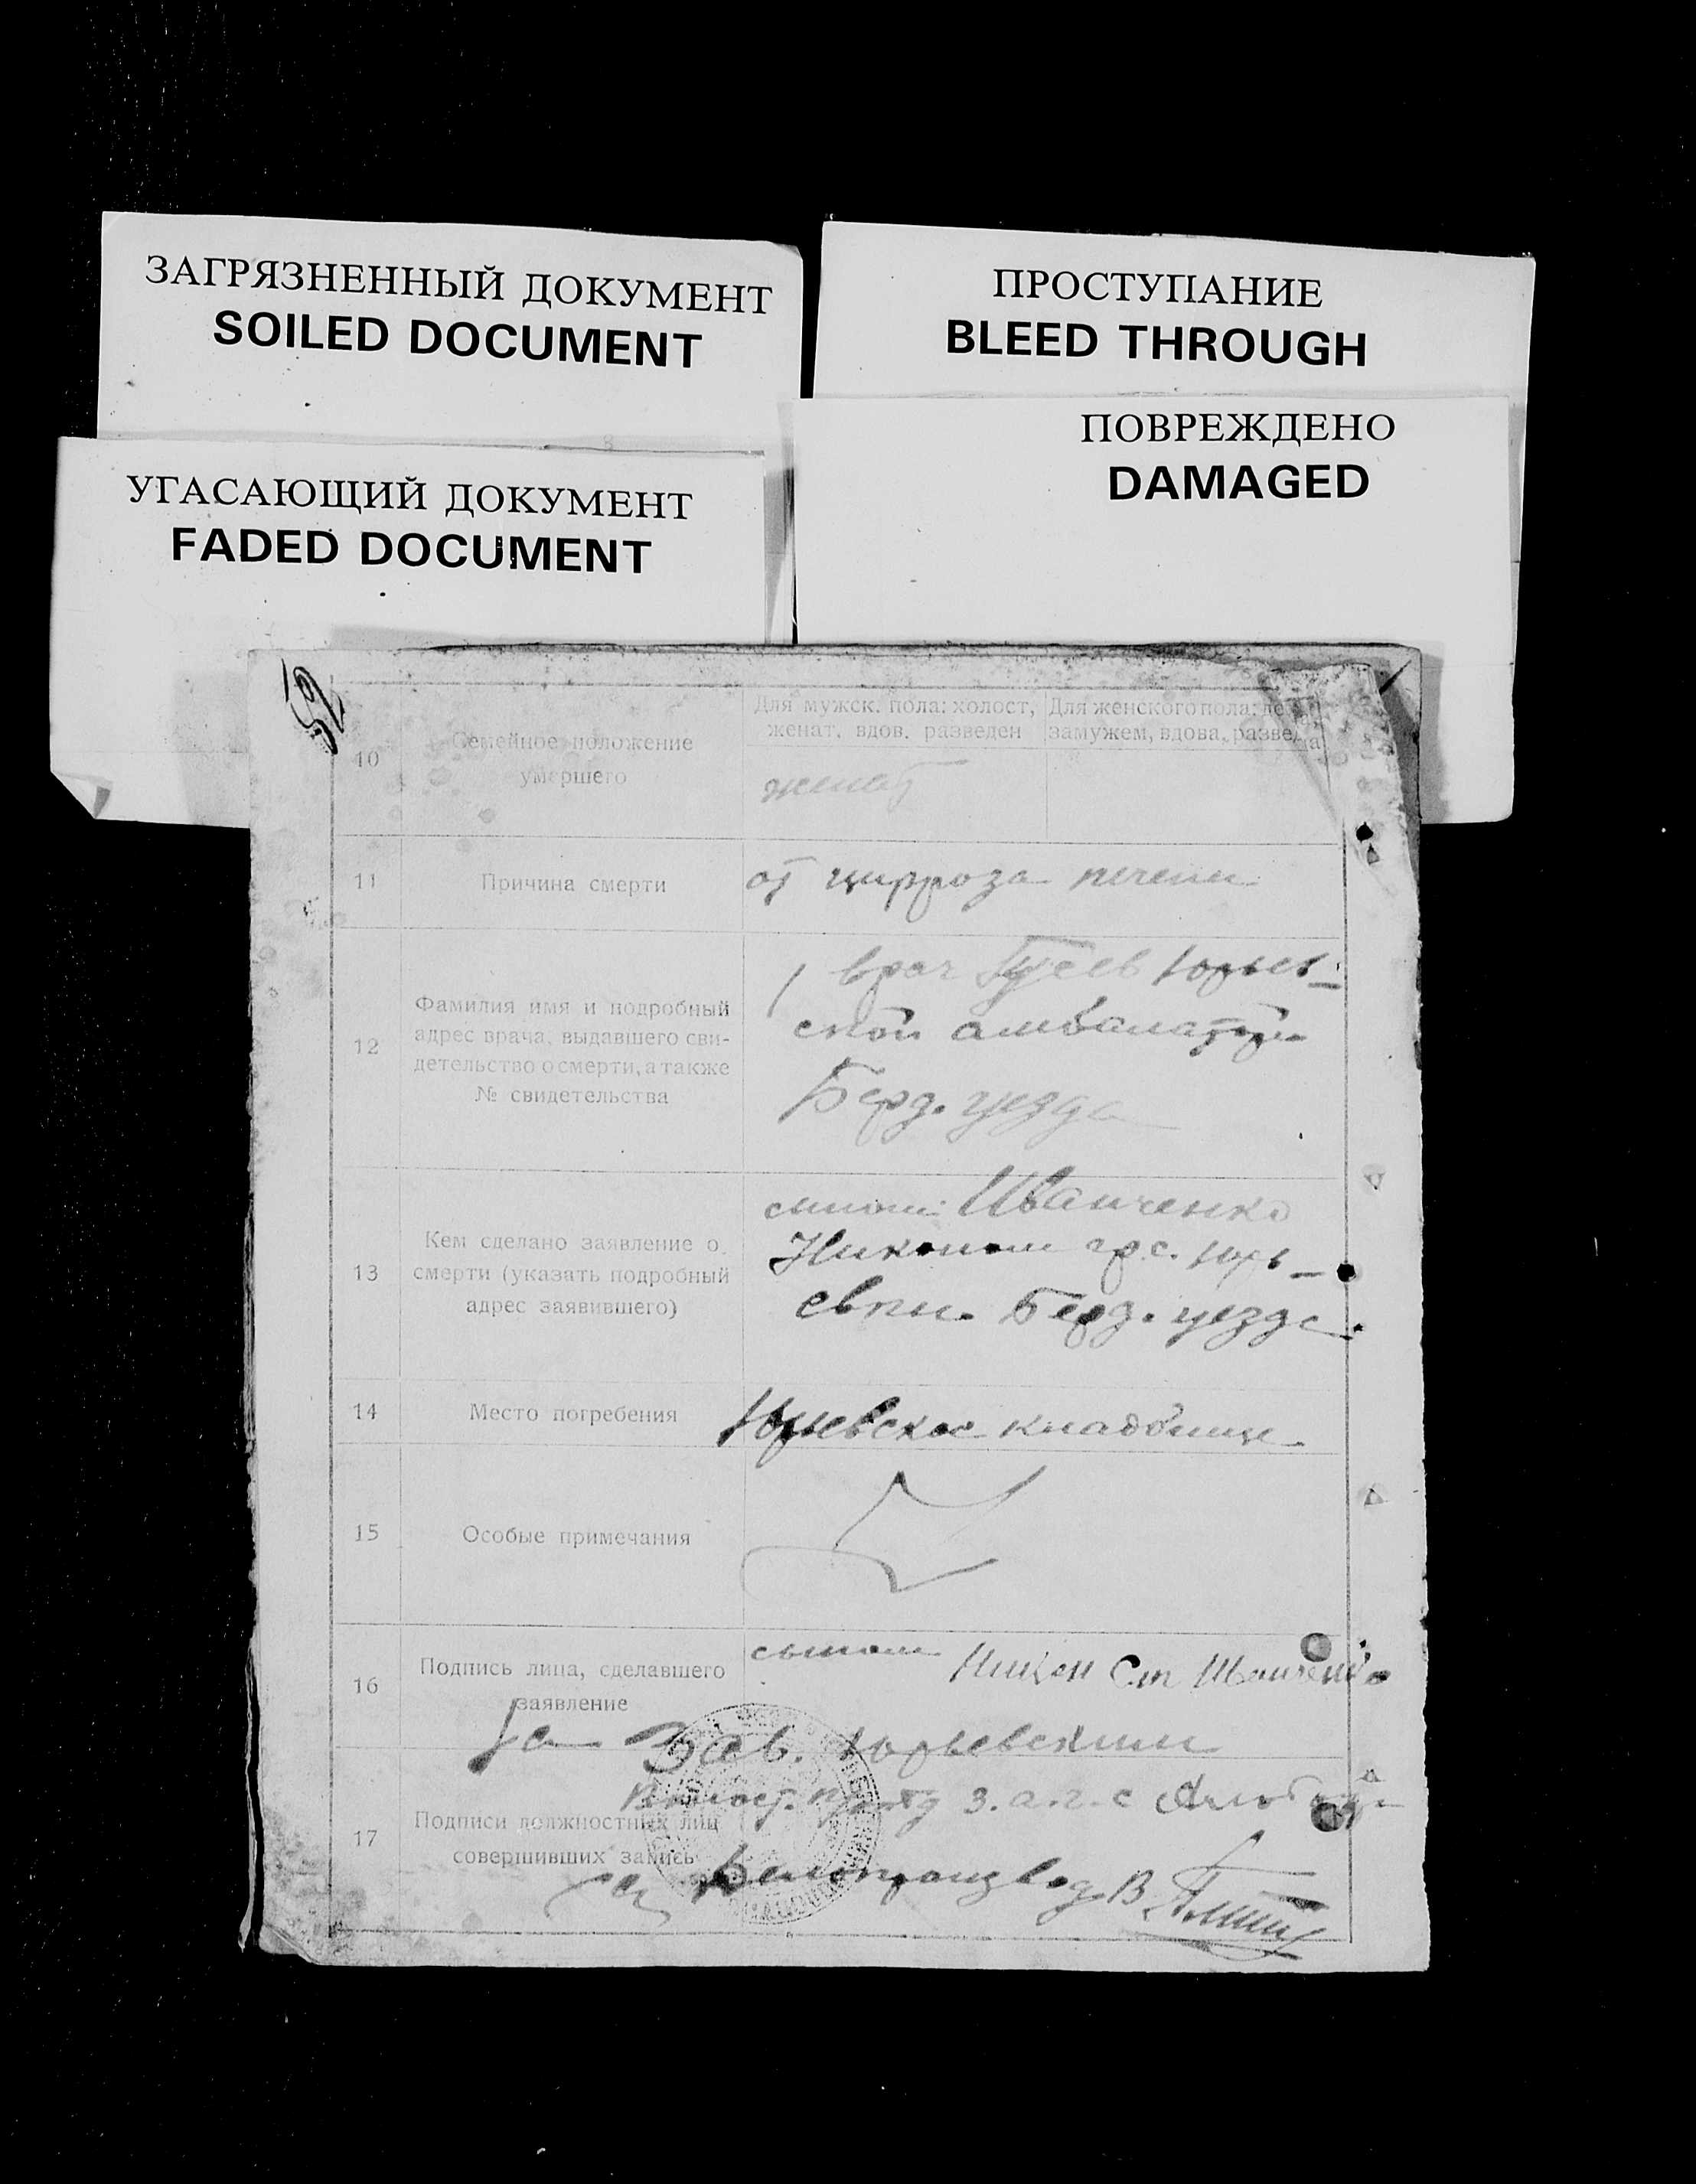 ЗАГРЯЗНЕННЫЙ ДОКУМЕНТ
SOILED DOCUMENT
ПРОСТУПАНИЕ
BLEED THROUGH
УГАСАЮЩИЙ ДОКУМЕНТ
FADED DOCUMENT
ПОВРЕЖДЕНО
DAMAGED
10
Семейное положение
умершего
Для мужск. пола: холост,
женат, вдов. разведен
Для женского пола:
замужем, вдова,
женат
11
Причина смерти
от цирроза печени
12
Фамилия имя и подробный
адрес врача, выдавшего сви-
детельство о смерти, а также
№ свидетельства
врач Гусев Юрьев-
ской
Берд. уезда
13
Кем сделано заявление о
смерти (указать подробный
адрес заявившего)
Иванченко
Никоном гр. с. Юрь-
Берд. уезда.
14
Место погребения
Юрьевское кладбище
15
Особые примечания
16
Подпись лица, сделавшего
заявление
сыном Никон Ст Иванченко
Зав. Юрьевским
З.а.г.с
17
Подписи должностных лиц
совершивших запись
Делопроизвод. В.